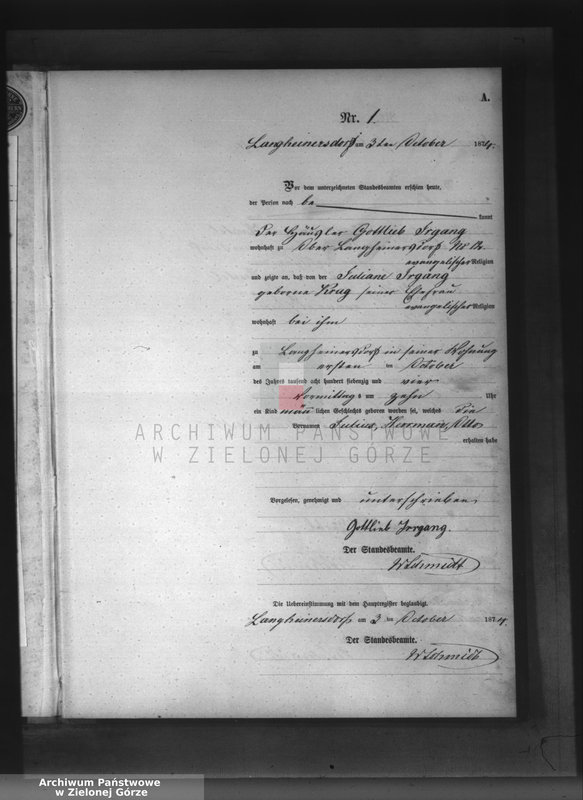 A.
Nr. 1.
Langheinersdorf am 3ten October 1874.
Vor dem unterzeichneten Standesbeamten erschien heute,
der Person nach be
kannt
Der Häusler Gottlieb Irgang
wohnhaft zu Ober Langheinersdorf Nr
evangelischer Religion
und zeigte an, daß von der Juliane Irgang
geborne Krug seiner Ehefrau
evangelischer Religion
wohnhaft bei ihm
zu Langheinersdorf in seiner Wohnung
am ersten ten October
des Jahres tausend acht hundert siebenzig und vier
Vormittags um zehn Uhr
ein Kind männlichen Geschlechts geboren worden sei, welches die
Vornamen Julius, Herman, Otto
erhalten habe
ARCHIWUM PAŃSTWOWE
W ZIELONEJ GÓRZE
Vorgelesen, genehmigt und unterschrieben.
Gottlieb Irrgang.
Der Standesbeamte.
WSchmidt
Die Uebereinstimmung mit dem Hauptregister beglaubigt.
Langheinersdorf am 3 ten October 1874.
Der Standesbeamte.
WSchmidt
Archiwum Państwowe
w Zielonej Górze